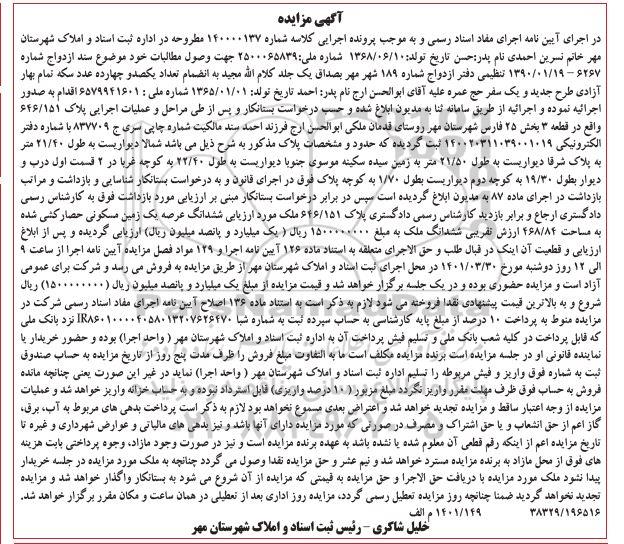 آگهی مزایده
در اجرای آیین نامه اجرای مفاد اسناد رسمی و به موجب پرونده اجرایی کلاسه شماره ۱۴۰۰۰۰۱۳۷ مطروحه در اداره ثبت اسناد و املاک شهرستان
مهر خانم نسرین احمدی نام پدر:حسن تاریخ تولد:۱۳۶۸/۰۶/۱۰ شماره ملی:۲۵۰۰۰۶۵۸۳۹ جهت وصول مطالبات خود موضوع سند ازدواج شماره
۶۲۶۷ – ۱۳۹۰/۰۱/۱۹ تنظیمی دفتر ازدواج شماره ۱۸۹ شهر مهر بصداق یک جلد کلام الله مجید به انضمام تعداد یکصدو چهارده عدد سکه تمام بهار
آزادی طرح جدید و یک سفر حج عمره علیه آقای ابوالحسن ارج نام پدر: احمد تاریخ تولد: ۱۳۶۵/۰۱/۰۱ شماره ملی : ۶۵۷۹۹۴۱۶۰۱ اقدام به صدور
اجرائیه نموده و اجرائیه از طریق سامانه ثنا به مدیون ابلاغ شده و حسب درخواست بستانکار و پس از طی مراحل و عملیات اجرایی پلاک ۶۴۶/۱۵۱
واقع در قطعه ۳ بخش ۲۵ فارس شهرستان مهر روستای قدمان ملکی ابوالحسن ارج فرزند احمد سند مالکیت شماره چاپی سری ج ۸۳۷۷۰۹ با شماره دفتر
الکترونیکی ۱۴۰۰۲۰۳۱۱۰۳۹۰۰۱۰۱۹ ثبت گردیده که حدود و مشخصات پلاک مذکور به شرح ذیل می باشد شمالا دیواریست به طول ۲۱/۴۰ متر
به پلاک شرقا دیواریست به طول ۲۱/۵۰ متر به زمین سیده سکینه موسوی جنوبا دیواریست به طول ۲۲/۴۰ به کوچه غربا در ۲ قسمت اول درب و
دیوار بطول ۱۹/۳۰ به کوچه دوم دیواریست بطول ۱/۷۰ به کوچه پلاک فوق در اجرای قانون و به درخواست بستانکار شناسایی و بازداشت و مراتب
بازداشت در اجرای ماده ۸۷ به مدیون ابلاغ گردیده است سپس در برابر درخواست بستانکار مبنی بر ارزیابی مورد بازداشت فوق به کارشناس رسمی
دادگستری ارجاع و برابر بازدید کارشناس رسمی دادگستری پلاک ۶۴۶/۱۵۱ ملک مورد ارزیابی ششدانگ عرصه یک زمین مسکونی حصارکشی شده
به مساحت ۴۶۸/۸۴ ارزش تقریبی ششدانگ ملک به مبلغ ۱۵۰۰۰۰۰۰۰۰ ریال ( یک میلیارد و پانصد میلیون ریال) ارزیابی گردیده و پس از ابلاغ
ارزیابی و قطعیت آن اینک در قبال طلب و حق الاجرای متعلقه به استناد ماده ۱۲۶ آیین نامه اجرا و ۱۲۹ مواد فصل مزایده آیین نامه اجرا از ساعت ۹
الی ۱۲ روز دوشنبه مورخ ۱۴۰۱/۰۳/۳۰ در محل اجرای ثبت اسناد و املاک شهرستان مهر از طریق مزایده به فروش می رسد و شرکت برای عمومی
آزاد است و مزایده حضوری بوده و در یک جلسه برگزار خواهد شد و قیمت مزایده از مبلغ یک میلیارد و پانصد میلیون ریال (۱۵۰۰۰۰۰۰۰۰) ریال
شروع و به بالاترین قیمت پیشنهادی نقدا فروخته می شود لازم به ذکر است به استناد ماده ۱۳۶ اصلاح آیین نامه اجرای مفاد اسناد رسمی شرکت در
مزایده منوط به پرداخت ۱۰ درصد از مبلغ پایه کارشناسی به حساب سپرده ثبت به شماره شبا IR۸۶۰۱۰۰۰۰۴۰۵۸۰۱۳۲۰۷۶۲۶۴۷۰ نزد بانک ملی
که قابل پرداخت در کلیه شعب بانک ملی و تسلیم فیش پرداخت آن به اداره ثبت اسناد و املاک شهرستان مهر ( واحد اجرا) بوده و حضور خریدار یا
نماینده قانونی او در جلسه مزایده است برنده مزایده مکلف است ما به التفاوت مبلغ فروش را ظرف مدت پنج روز از تاریخ مزایده به حساب صندوق
ثبت به شماره فوق واریز و فیش مربوطه را تسلیم اداره ثبت اسناد و املاک شهرستان مهر ( واحد اجرا) نماید در غیر این صورت یعنی چنانچه مانده
فروش به حساب فوق ظرف مهلت مقرر واریز نگردد مبلغ مزبور (۱۰ درصد واریزی) قابل استرداد نبوده و به حساب خزانه واریز خواهد شد و عملیات
مزایده از وجه اعتبار ساقط و مزایده تجدید خواهد شد و اعتراض بعدی مسموع نخواهد بود لازم به ذکر است پرداخت بدهی های مربوط به آب، برق،
گاز اعم از حق انشعاب و یا حق اشتراک و مصرف در صورتی که مورد مزایده دارای آنها باشد و نیز بدهی های مالیاتی و عوارض شهرداری و غیره تا
تاریخ مزایده اعم از اینکه رقم قطعی آن معلوم شده یا نشده باشد به عهده برنده مزایده است و نیز در صورت وجود مازاد، وجوه پرداختی بابت هزینه
های فوق از محل مازاد به برنده مزایده مسترد خواهد شد و نیم عشر و حق مزایده نقدا وصول می گردد چنانچه به ملک مورد مزایده در جلسه خریدار
پیدا نشود ملک مورد مزایده با دریافت حق الاجرا و حق مزایده به قیمتی که مزایده از آن شروع می شود به بستانکار واگذار خواهد شد و مزایده
تجدید نخواهد گردید ضمنا چنانچه روز مزایده تعطیل رسمی گردد، مزایده روز اداری بعد از تعطیلی در همان ساعت و مکان مقرر برگزار خواهد شد.
۳۸۳۲۹/۱۹۶۵۱۶ ۱۴۰۱/۱۴۹ م الف
خلیل شاگری – رئیس ثبت اسناد و املاک شهرستان مهر